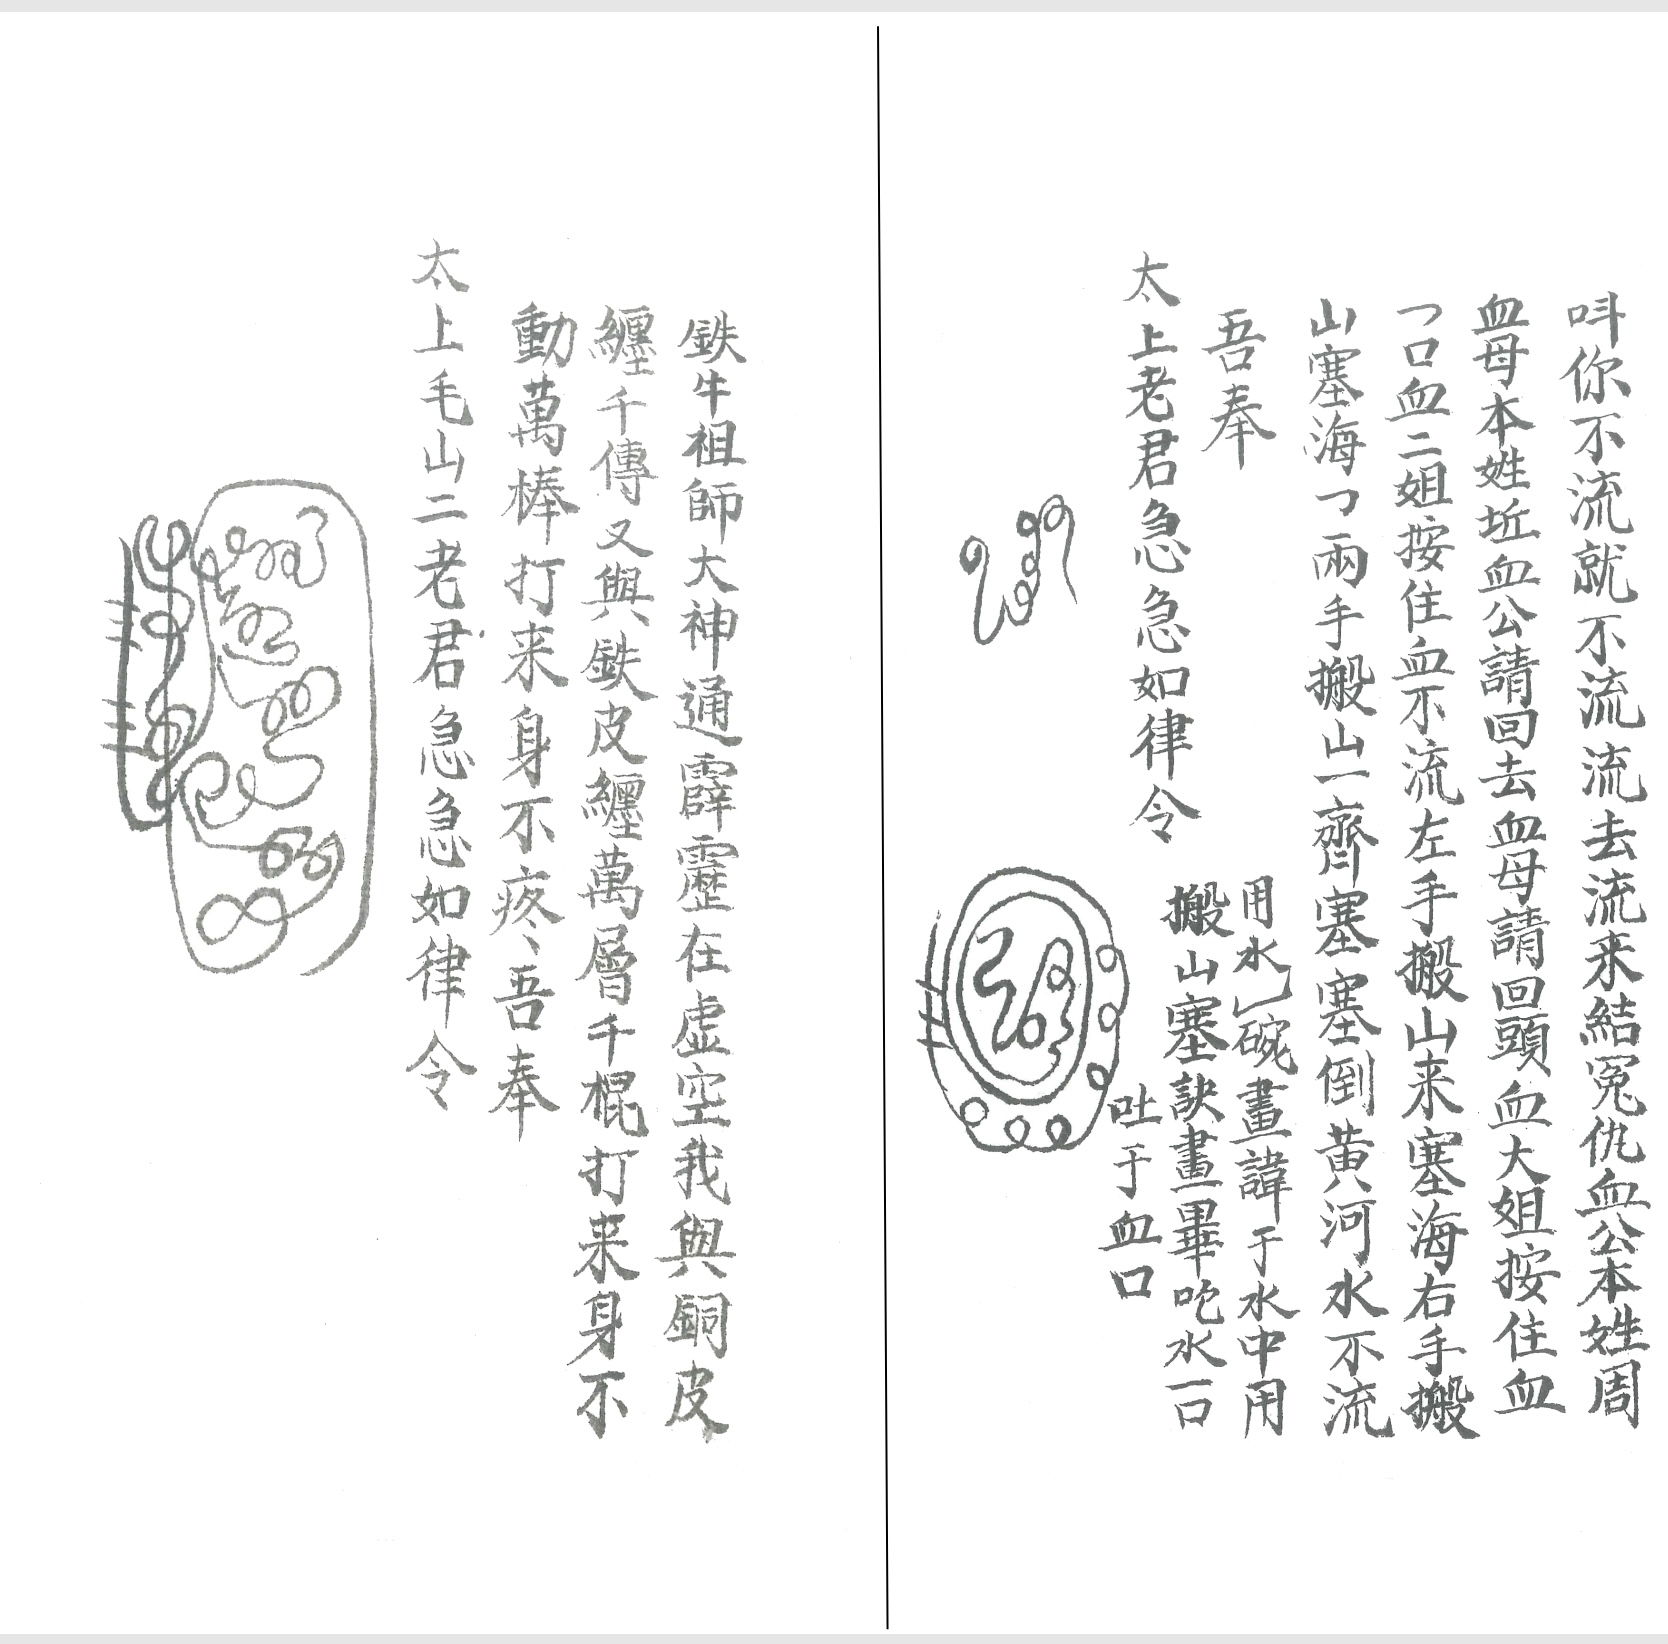 呌你不流就不流流去流来結冤仇血公本姓周
血母本姓坵血公請回去血母請回頭血大姐按住血
乛口血二姐按住血不流左手搬山来塞海右手搬
山塞海乛兩手搬山一齊塞塞倒黄河水不流
吾奉
太上老君急急如律令
用水乚碗畫諱于水中用
搬山塞訣畫畢吃水一口
吐于血口
鉄牛祖師大神通霹靂在虚空我與銅皮
纒千傳又與鉄皮纒萬層千棍打来身不
動萬棒打来身不疼吾奉
太上毛山二老君急急如律令